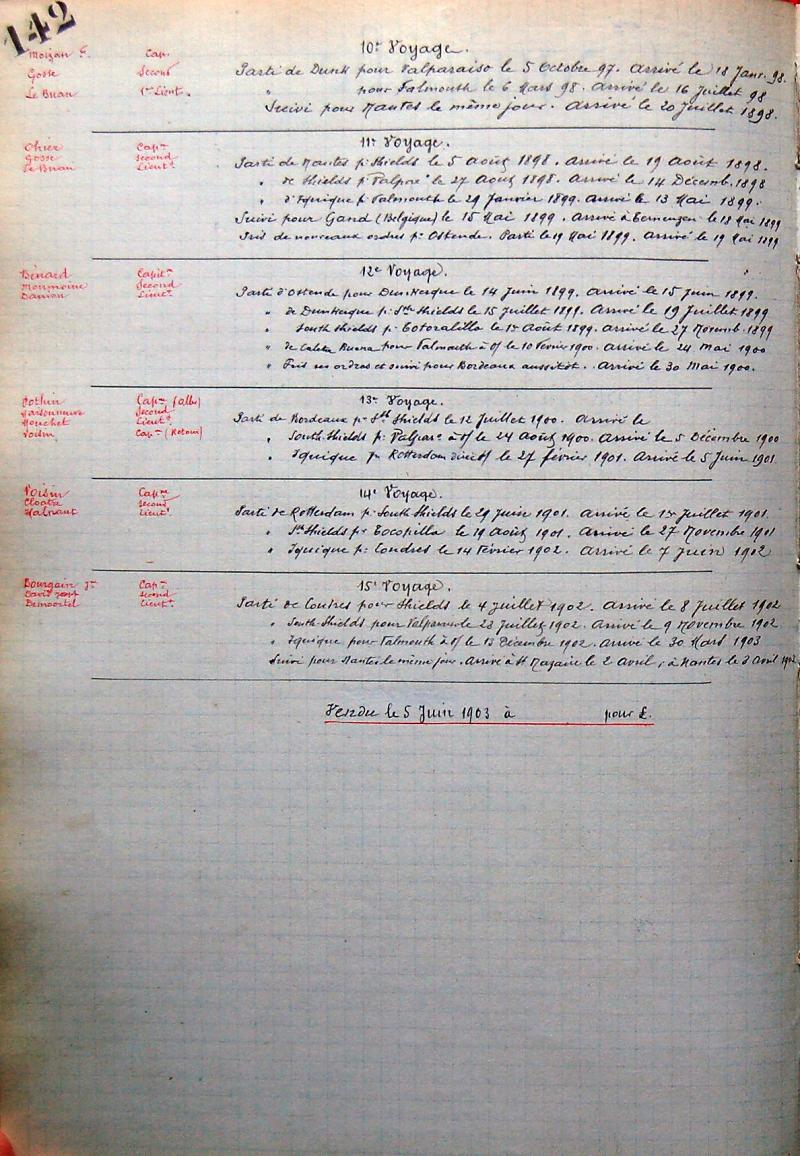 142
10e Voyage.
Morzan F. Cap. Parti de Dunk pour Valparaiso le 5 Octobre 97. Arrivé le 18 Janv. 98.
Gosse Second " pour Falmouth le 6 Mars 98. Arrivé le 16 Juillet 98
Le Bran 1er Lieut. Suivi pour Nantes le même jour. Arrivé le 20 Juillet 1898.
11e Voyage.
Ohier Capne Parti de Nantes pr Shields le 5 Août 1898. Arrivé le 19 Août 1898.
Gosse Second " de Shields pr Valpare le 27 Août 1898. Arrivé le 14 Décemb. 1898
Le Bran Lieutt " d'Iquique pr Falmouth le 29 Janvier 1899. Arrivé le 13 Mai 1899.
Suivi pour Gand (Belgique) le 15 Mai 1899. Arrivé à Terneuzen le 18 Mai 1899
Pris de nouveaux ordres pr Ostende. Parti le 19 Mai 1899. Arrivé le 19 Mai 1899
12e Voyage.
Bénard Capitne Parti d'Ostende pour Dunkerque le 14 Juin 1899. Arrivé le 15 Juin 1899.
Second " de Dunkerque pr Sth Shields le 15 Juillet 1899. Arrivé le 19 Juillet 1899
Danion Lieutt " South Shields pr Totoralillo le 1er Août 1899. Arrivé le 27 Novemb. 1899
" de Caleta Buena pour Falmouth à o/ le 10 Février 1900. Arrivé le 24 Mai 1900
" Pris ses ordres et suivi pour Bordeaux aussitôt. Arrivé le 30 Mai 1900.
13e Voyage.
Pothin Capne (aller) Parti de Bordeaux pr Sth Shields le 12 Juillet 1900. Arrivé le
Second " South Shields pr Valpare à o/ le 24 Août 1900. Arrivé le 5 Décembre 1900
Lieutt " Iquique pr Rotterdam direct le 27 février 1901. Arrivé le 5 Juin 1901.
Voisin Capne (Retour)
14e Voyage.
Voisin Capne Parti de Rotterdam pr South Shields le 29 Juin 1901. Arrivé le 1er Juillet 1901.
Second " Sth Shields pr Tocopilla le 19 Août 1901. Arrivé le 27 Novembre 1901
Lieutt " Iquique pr Londres le 14 Février 1902. Arrivé le 7 Juin 1902
15e Voyage.
Bourgain Jne Capne Parti de Londres pour Shields le 4 Juillet 1902. Arrivé le 8 Juillet 1902
Second " South Shields pour Valparaiso le 23 Juillet 1902. Arrivé le 9 Novembre 1902
Lieutt " Iquique pour Falmouth à o/ le 13 Décembre 1902. Arrivé le 30 Mars 1903
Suivi pour Nantes le même jour. Arrivé à St Nazaire le 2 Avril, à Nantes le 3 Avril
Vendu le 5 Juin 1903 à pour £.